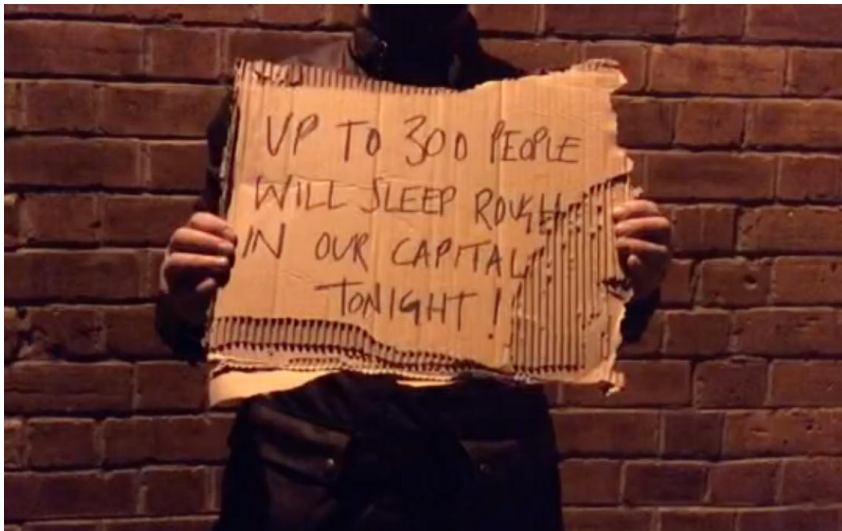 UP TO 300 PEOPLE
WILL SLEEP ROUGH
IN OUR CAPITAL
TONIGHT!